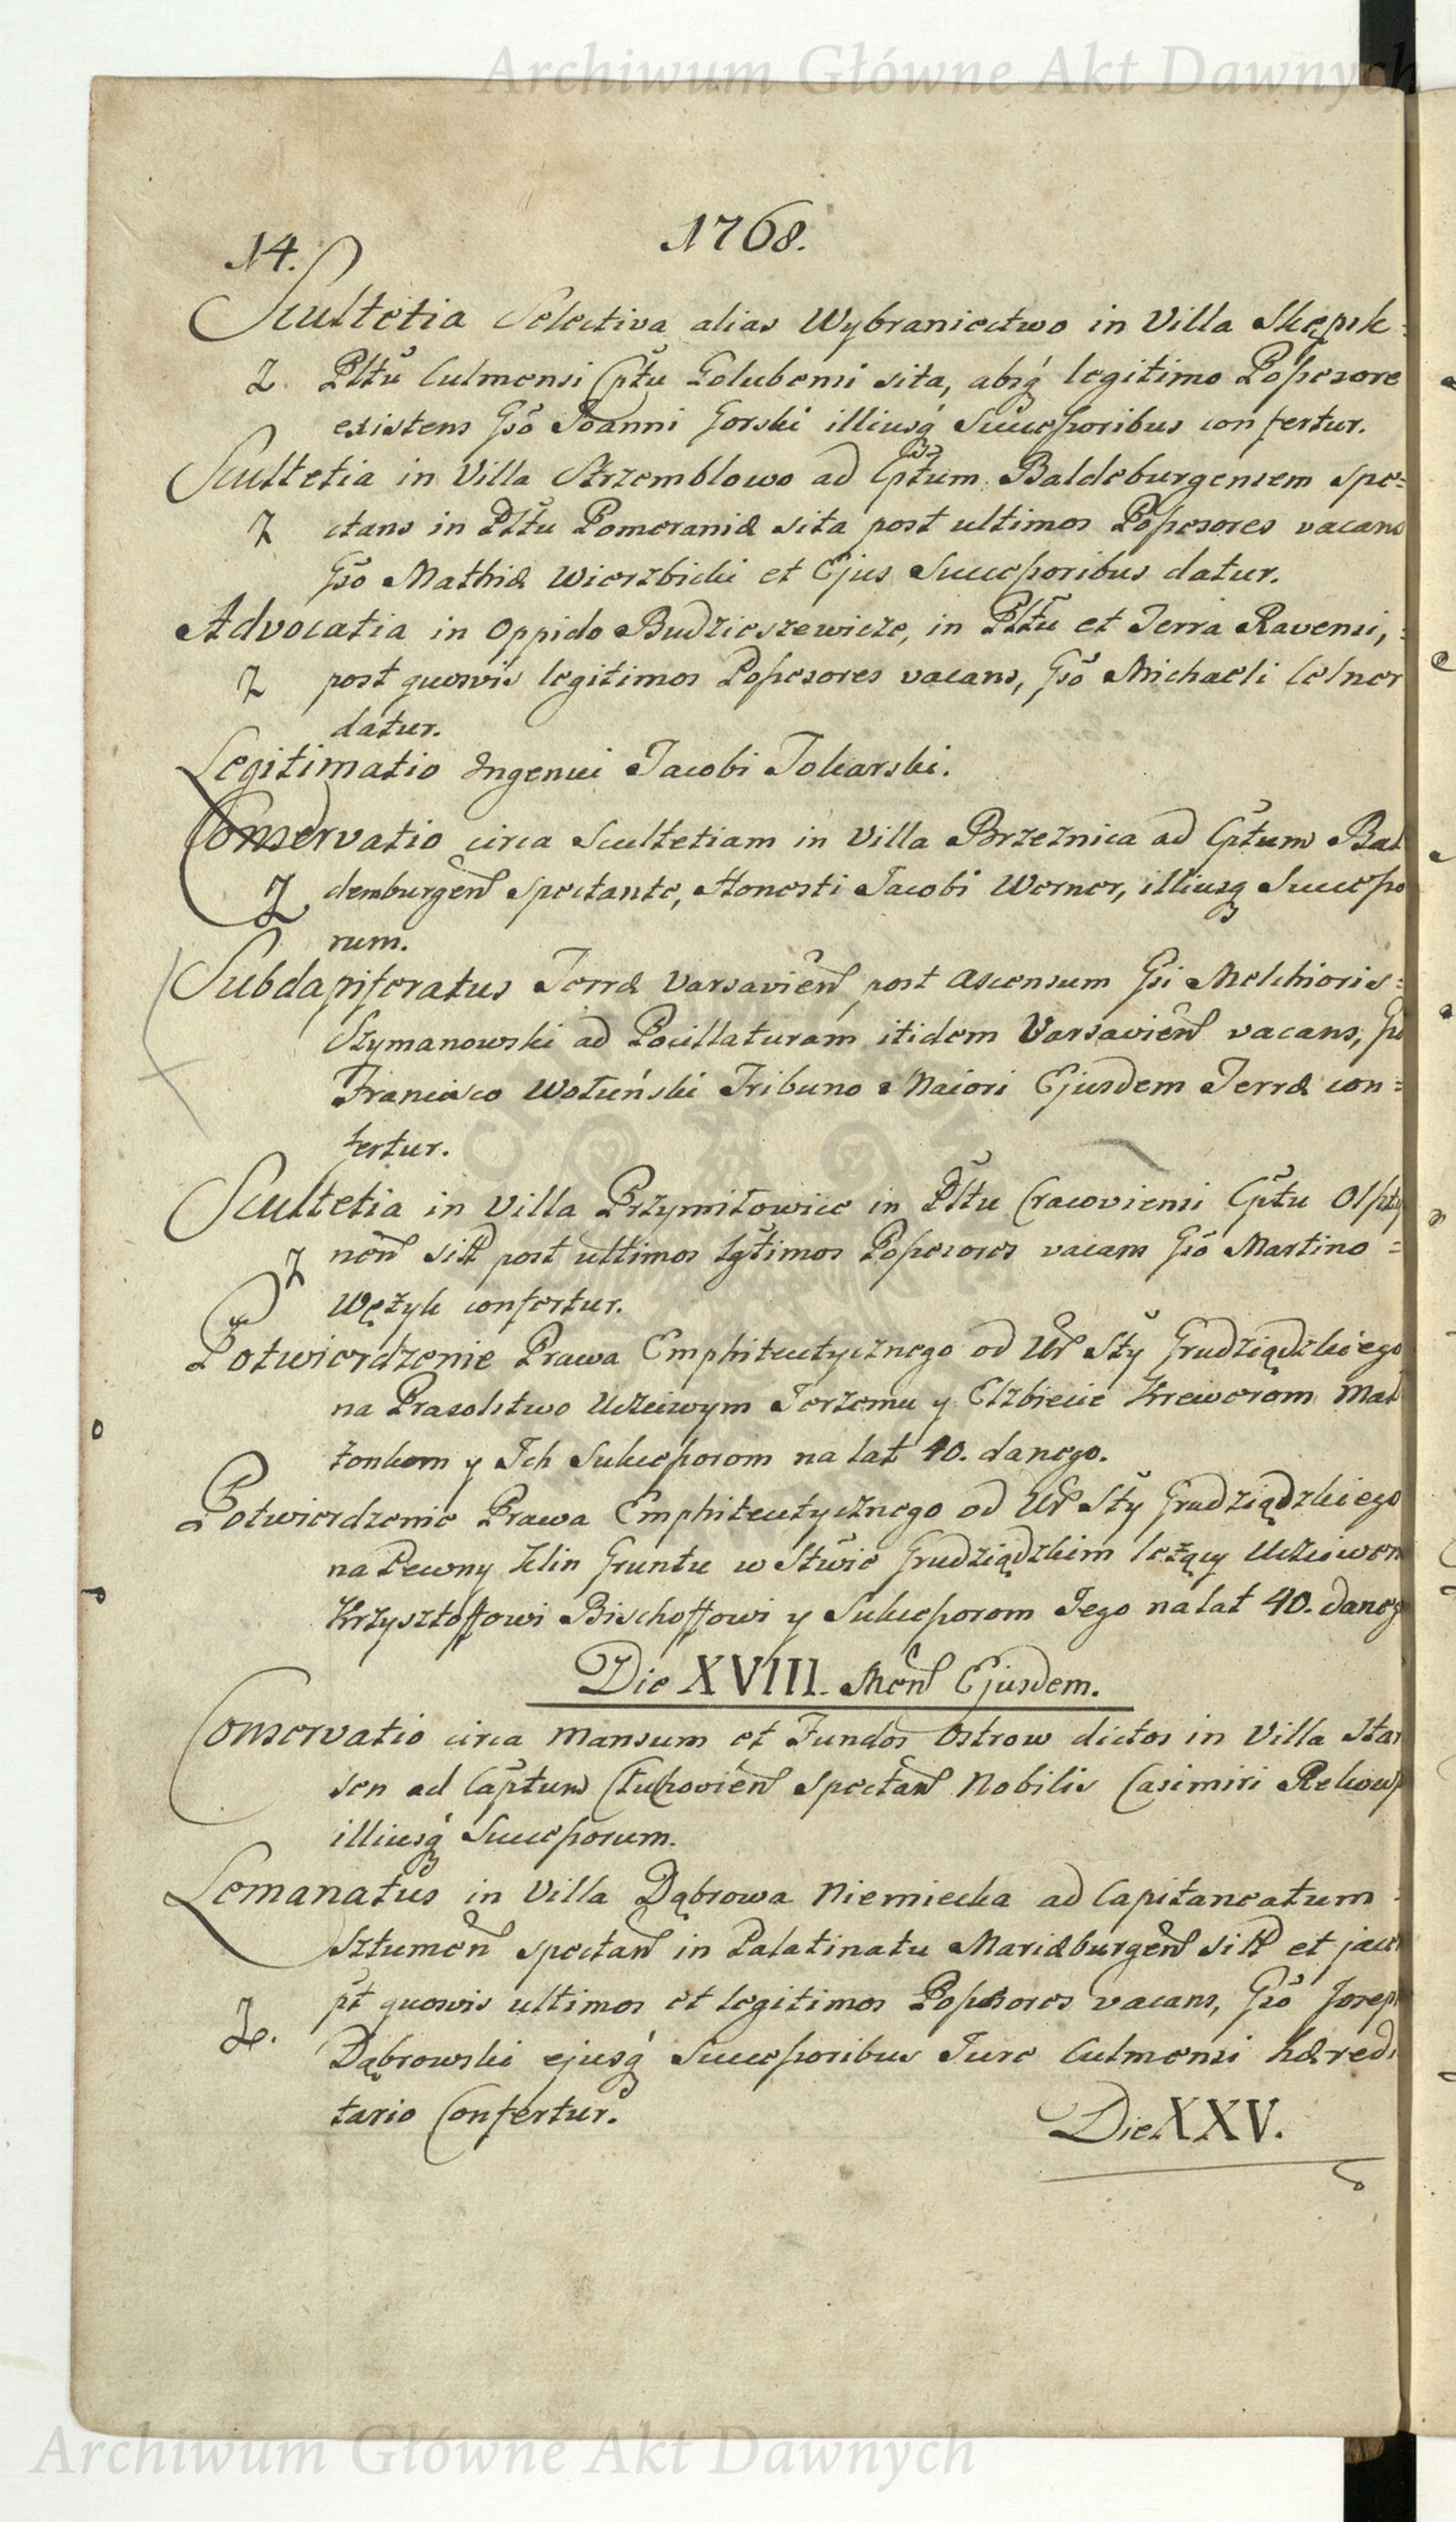 Archiwum Główne Akt Dawnych
14.
1768.
Scultetia Selectiva alias Wybraniectwo in Villa Skępsk
Z Plttu Culmensi Cpttu Golubensi sita, absq legitimo Possessore
existens Gso Joanni Gorski illiusq Successoribus confertur.
Scultetia in Villa Strzemblowo ad Cptum Baldeburgensem spe=
Z ctans in Plttu Pomeraniæ sita post ultimos Possesores vacans
Gso Mathiæ Wierzbicki et Ejus Successoribus datur.
Advocatia in Oppido Budzieszewicze, in Plttu et Terra Ravensi,
Z post quosvis legitimos Possesores vacans, Gso Michaeli Celner
datur.
Legitimatio Ingenui Jacobi Tokarski.
Conservatio circa Scultetiam in Villa Brzeznica ad Cptum Bal
Z demburgen spectante, Honesti Jacobi Werner, illiusq Successo
rum.
Subdapiferatus Terræ Varsavien post ascensum Gsi Melchioris=
Szymanowski ad Pocillaturam itidem Varsavien vacans, Gso
Francisco Wotuński Tribuno Maiori Ejusdem Terræ con=
fertur.
Scultetia in Villa Przymiłowice in Plttu Cracoviensi Cpttu Olszty
Z nen sitt post ultimos lgtimos Possesores vacans Gso Martino =
Wężyk confertur.
Potwierdzenie Prawa Emphiteutycznego od Ur Sty Grudziądzkiego
na Prasolstwo Uczciwym Jerzemu y Elzbiecie Krewerom Mał
żonkom y Ich Sukcessorom na lat 40. danego.
Potwierdzenie Prawa Emphiteutycznego od Ur Sty Grudziądzkiego
na Pewny Klin Gruntu w Stwie Grudziądzkim leżący Uczciwem
Krzysztoffowi Bischoffowi y Sukcessorom Jego na lat 40. daneg
Die XVIII. Men Ejusdem.
Conservatio circa Mansum et Fundos Ostrow dictos in Villa Star
sen ad Captum Człuchovien spectan Nobilis Casimiri Rekows
illiusq Successorum.
Lemanatus in Villa Dąbrowa Niemiecka ad Capitaneatum
Sztumen spectan in Palatinatu Mariæburgen sitt et jacen
pt quosvis ultimos et legitimos Possesores vacans, Gso Joseph
Z. Dąbrowski ejusq Successoribus Jure Culmensi hæredi
tario Confertur.
Die XXV.
Archiwum Główne Akt Dawnych